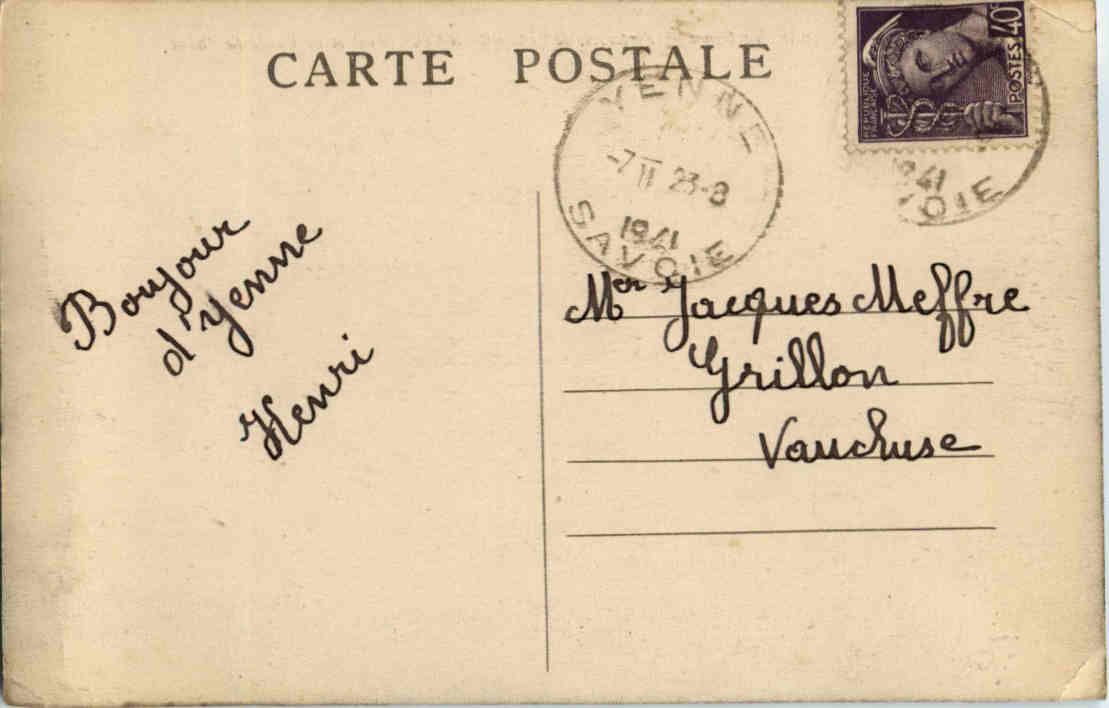 CARTE POSTALE
40c
POSTES
REPUBLIQUE
FRANÇAISE
YENNE
-7 II 23-8
1941
SAVOIE
1941
VOIE
Bonjour
d'Yenne
Henri
Mer Jacques Meffre
Grillon
Vaucluse